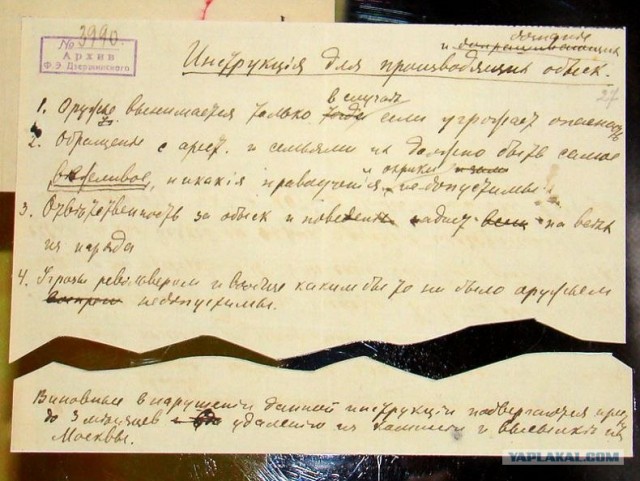 № 3990.
Архив
Ф.Э. Дзержинского
и допрашивающих
Инструкція для производящих обыск.
27
в случае
1. Оружие вынимается только если угрожает опасность
2. Обращение с арест. и семьями их должно быть самое
и окрики
вежливое, никакія нравоученія недопустимы.
3. Ответственность за обыск и поведение падает на всех
из наряда
4. Угрозы револьвером и вообще каким бы то ни было оружием
недопустимы.
Виновные в нарушении данной инструкции подвергаются аресту
до 3 месяцев удалению из комиссии и высылкѣ из
Москвы.
YAPLAKAL.COM